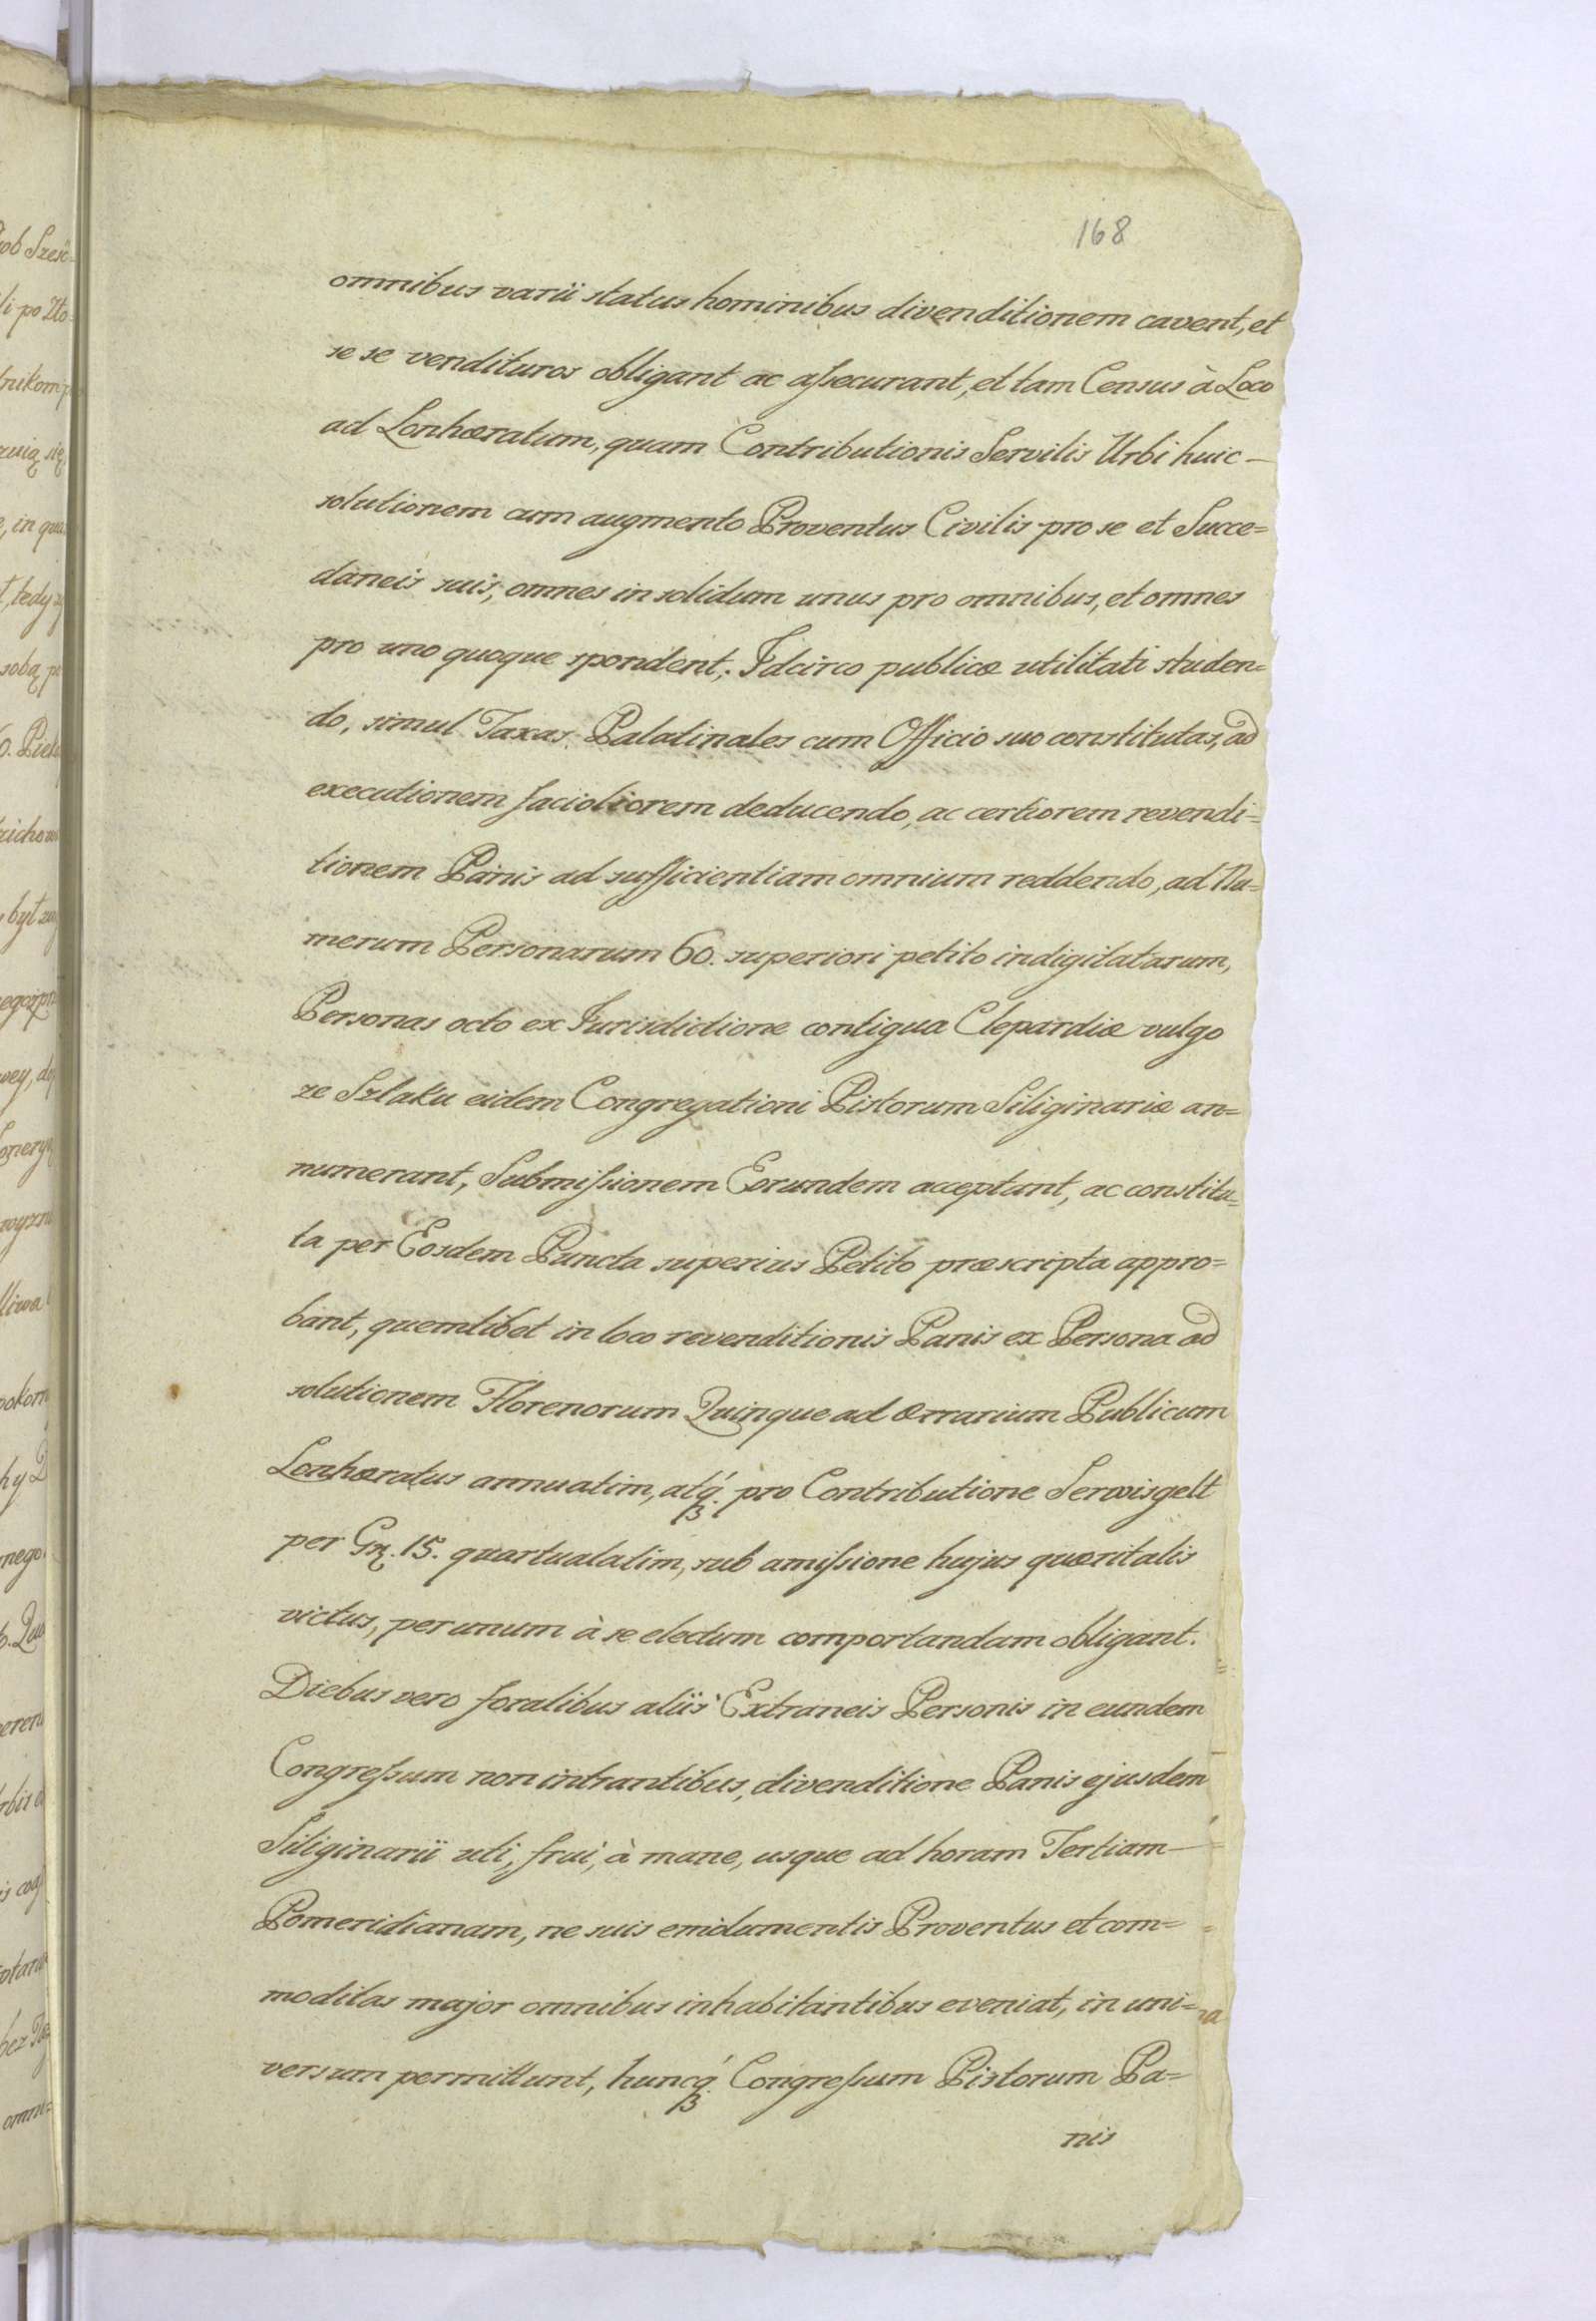 168
omnibus varii status hominibus divenditionem cavent, et
se se vendituros obligant ac aſsecurant, et tam Census à Loco
ad Lonhæratum, quam Contributionis Servilis Urbi huic —
solutionem cum augmento Proventus Civilis pro se et Succe=
daneis suis, omnes in solidum unus pro omnibus, et omnes
pro uno quoque spondent; Idcirco publicæ utilitati studen=
do, simul Taxas Palatinales cum Officio suo constitutas, ad
executionem facioliorem deducendo, ac certiorem revendi=
tionem Panis ad sufficientiam omnium reddendo, ad Nu=
merum Personarum 60. superiori petito indigitatarum,
Personas octo ex Jurisdictione contigua Clepardiæ vulgo
ze Szlaku eidem Congregationi Pistorum Siliginariæ an=
numerant, Submiſsionem Eorundem acceptant, ac constitu=
ta per Eosdem Puncta superius Petito præscripta appro=
bant, quemlibet in loco revenditionis Panis ex Persona ad
solutionem Florenorum Quinque ad Ærrarium Publicum
Lonhæratus annuatim, atq́ꝫ pro Contributione Serwisgelt
per Gr. 15. quartualatim, sub amiſsione hujus quæritalis
victus, per unum à se electum comportandam obligant.
Diebus vero foralibus aliis Extraneis Personis in eundem
Congreſsum non intrantibus, divenditione Panis ejusdem
Siliginarii uti, frui, à mane, usque ad horam Tertiam —
Pomeridianam, ne suis emolumentis Proventus et com=
moditas major omnibus inhabitantibus eveniat, in uni=
versum permittunt, huncq́ꝫ Congreſsum Pistorum Pa=
nis